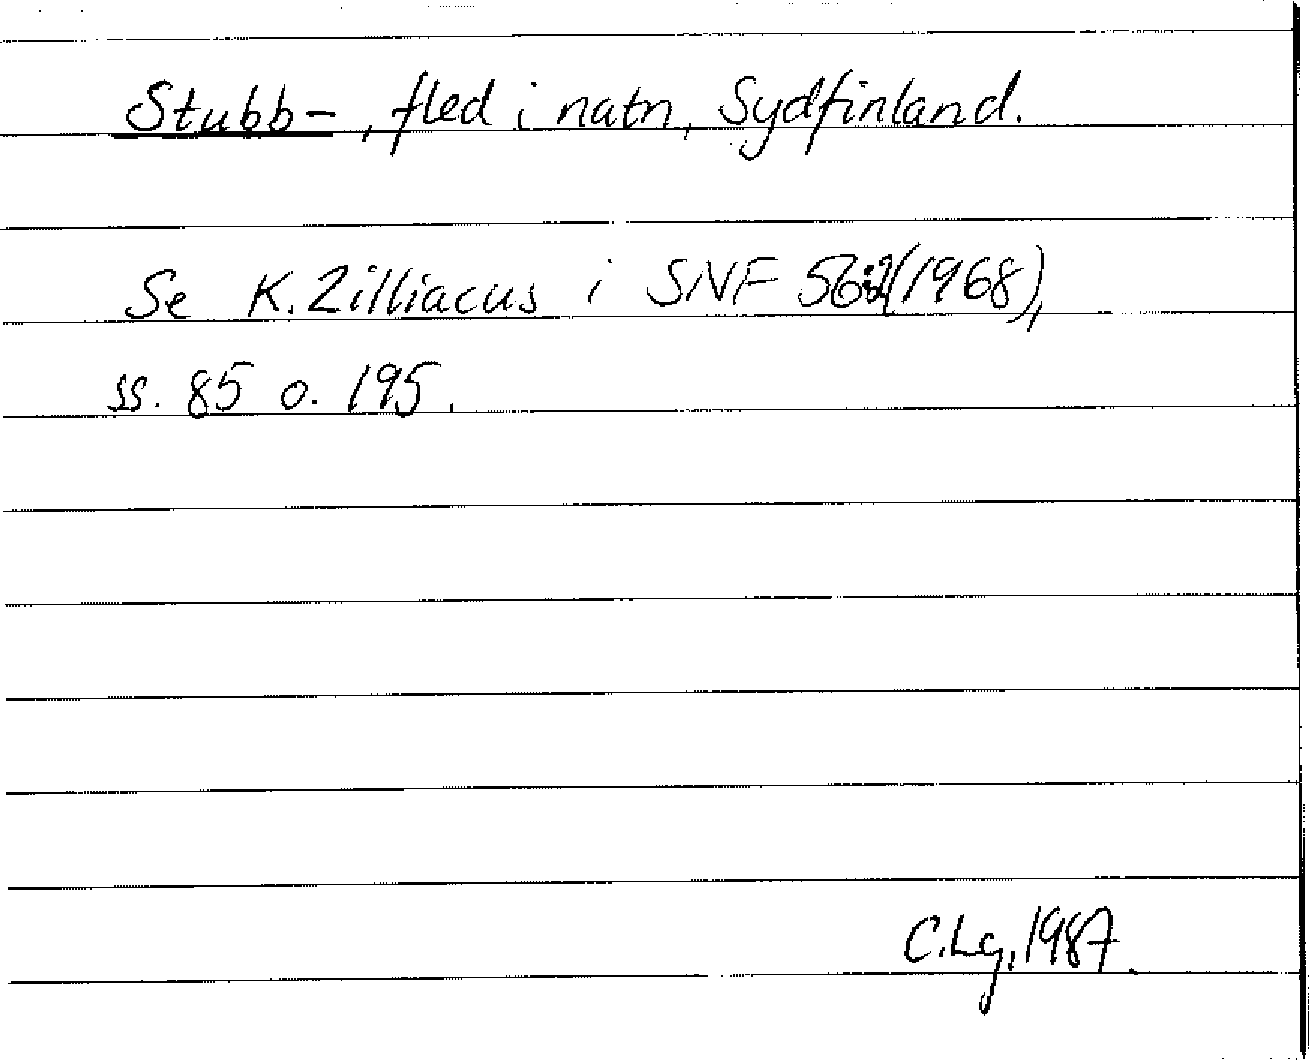 Stubb-, fled i natn, Sydfinland.
Se K. Zilliacus i SNF 56:2(1968),
ss. 85 o. 195.
C.Lg, 1987.